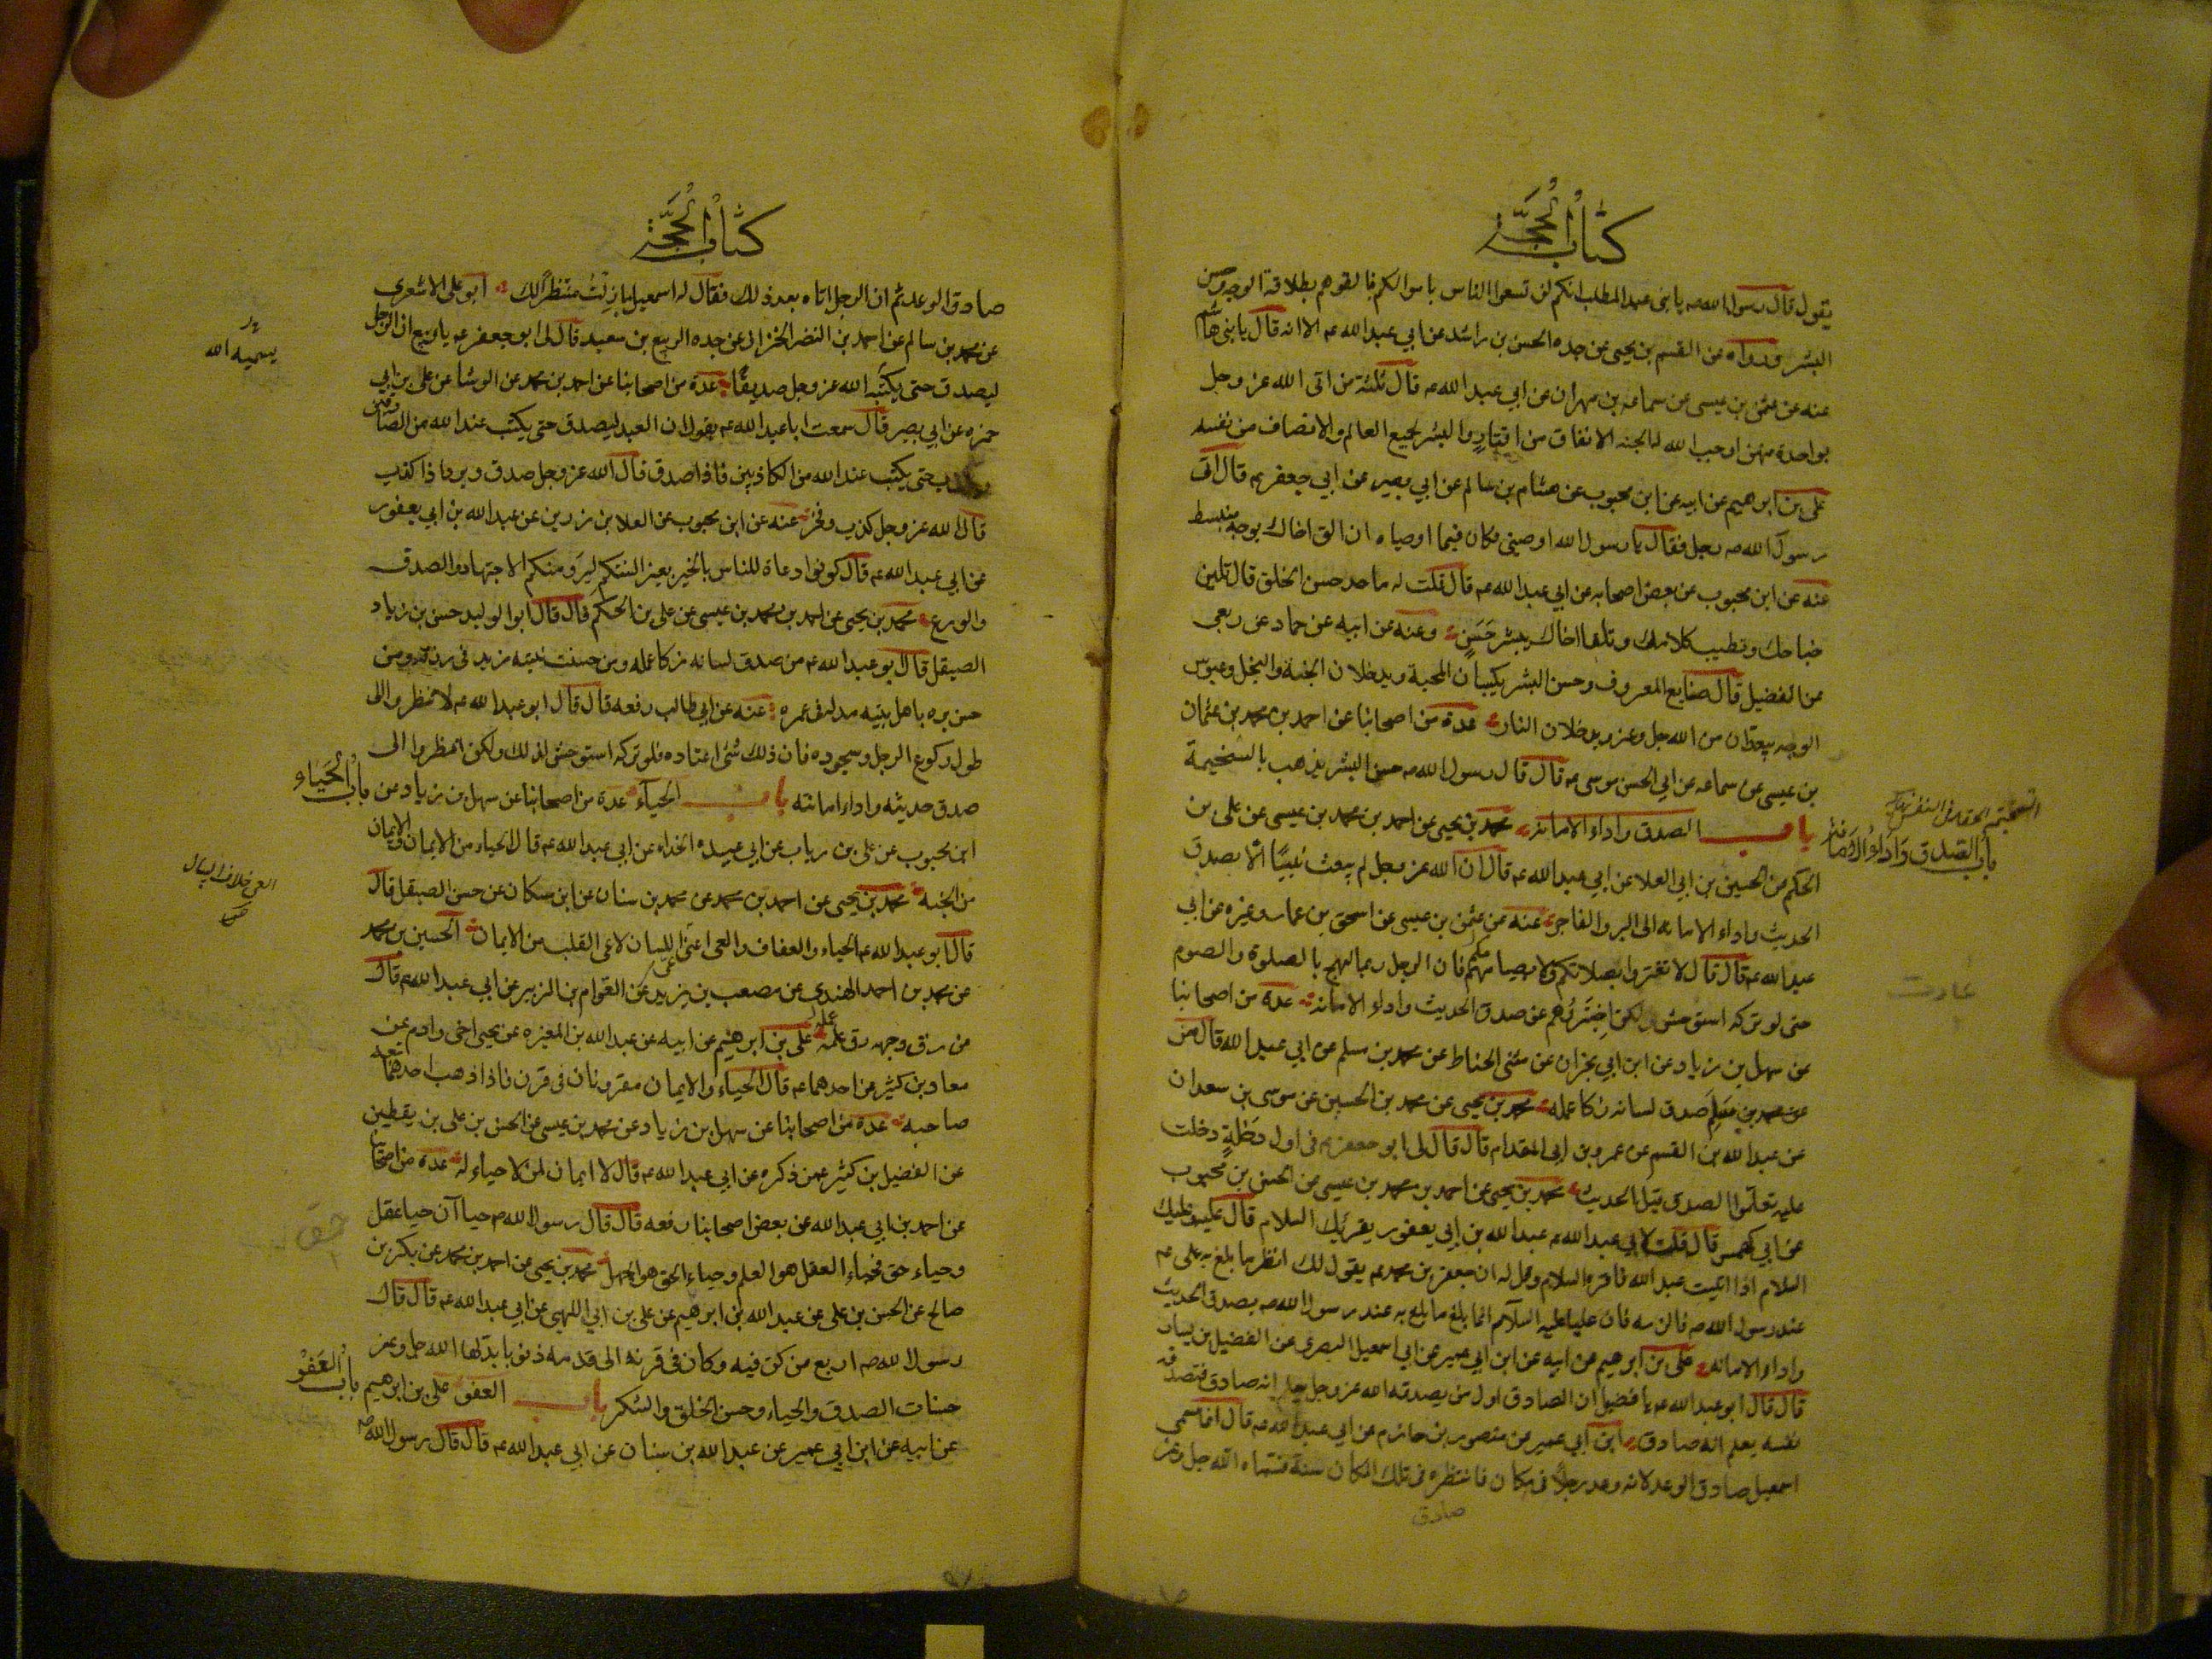 كتاب الحجة
يقول قال رسول الله صه يا بنى عبد المطلب انكم لن تسعوا الناس باموالكم فالقوهم بطلاقة الوجه وحسن
البشر ورواه عن القسم بن يحيى عن جده الحسن بن راشد عن ابي عبد الله عه الا انه قال يا بنى هاشم
عنه عن عثمن بن عيسى عن سماعه بن مهران عن ابي عبد الله عه قال ثلثة من اتى الله عز وجل
بواحدة منهن اوجب الله له الجنه الانفاق من اقتار والبشر لجميع العالم والانصاف من نفسه
على بن ابرهيم عن ابيه عن ابن محبوب عن هشام بن سالم عن ابي بصير عن ابي جعفر عه قال اتى
رسول الله صه رجل فقال يا رسول الله اوصنى فكان فيما اوصاه ان الق اخاك بوجه منبسط
عنه عن ابن محبوب عن بعض اصحابه عن ابي عبد الله عه قال قلت له ما حد حسن الخلق قال تلين
جناحك وتطيب كلامك وتلقا اخاك ببشر حَسَنٍ وعنه عن ابيه عن حماد عن ربعى
عن الفضيل قال صنايع المعروف وحسن البشر يكسبان المحبة ويدخلان الجنة والبخل وعبوس
الوجه يبعدان من الله جل وعز ويدخلان النار عدة من اصحابنا عن احمد بن محمد بن عثمان
بن عيسى عن سماعه عن ابي الحسن موسى عه قال قال رسول الله صه حسن البشر يذهب بالسخيمة
باب الصدق واداء الامانه محمد بن يحيى عن احمد بن محمد بن عيسى عن على بن
باب الصدق واداء الامانة
الحكم عن الحسين بن ابي العلا عن ابي عبد الله عه قال ان الله عز وجل لم يبعث نبيًا الا بصدق
الحديث واداء الامانه الى البر والفاجر عنه عن عثمن بن عيسى عن اسحق بن عمار وغيره عن ابي
عبد الله عه قال قال لا تغتروا بصلاتكم ولا بصيامهم فان الرجل ربما لهج بالصلوة والصوم
حتى لو تركه استوحش ولكن اختبروهم عن صدق الحديث واداء الامانه عدة من اصحابنا
عن سهل بن زياد عن ابن ابي نجران عن مثنى الحناط عن محمد بن مسلم عن ابي عبد الله قال من
صدق لسانه زكا عمله محمد بن يحيى عن محمد بن الحسين عن موسى بن سعدان
عن عبد الله بن القسم عن عمرو بن ابي المقدام قال قال لى ابو جعفر عه فى اول دخلة دخلت
عليه تعلّموا الصدق قبل الحديث محمد بن يحيى عن احمد بن محمد بن عيسى عن الحسن بن محبوب
عن ابي كهمس قال قلت لابي عبد الله عه عبد الله بن ابي يعفور يقريك السلام قال عليك وعليه
السلام اذا اتيت عبد الله فاقره السلام وقل له ان جعفر بن محمد عه يقول لك انظر ما بلغ به على عه
عند رسول الله صه فالزمه فان عليا عليه السلام انما بلغ ما بلغ به عند رسول الله صه بصدق الحديث
واداء الامانه على بن ابرهيم عن ابيه عن ابن ابي عمير عن ابي اسمعيل البصرى عن الفضيل بن يسار
قال قال ابو عبد الله عه يا فضيل ان الصادق اول من يصدقه الله عز وجل يعلم انه صادق وتصدقه
نفسه يعلم انه صادق ابن ابي عمير عن منصور بن حازم عن ابي عبد الله عه قال انما سمى
اسمعيل صادق الوعد لانه وعد رجلًا فى مكان فانتظره فى تلك المكان سنة فسماه الله جل وعز
صادق
عادت
كتاب الحجة
صادق الوعد ثم ان الرجل اتاه بعد ذلك فقال له اسمعيل ما زلت منتظرًا لك ابو على الاشعرى
عن محمد بن سالم عن احمد بن النضر الخزاز عن جده الربيع بن سعيد قال لى ابو جعفر عه يا ربيع ان الرجل
يسميه الله
ليصدق حتى يكتبه الله عز وجل صديقًا عدة من اصحابنا عن احمد بن محمد عن الوشا عن على بن ابي
حمزه عن ابي بصير قال سمعت ابا عبد الله عه يقول ان العبد ليصدق حتى يكتب عند الله من الصادقين
حتى يكتب عند الله من الكاذبين فاذا صدق قال الله عز وجل صدق وبر واذا كذب
قال الله عز وجل كذب وفجر عنه عن ابن محبوب عن العلا بن رزين عن عبد الله بن ابي يعفور
عن ابي عبد الله عه قال كونوا دعاة للناس بالخير بغير السنتكم ليروا منكم الاجتهاد والصدق
والورع محمد بن يحيى عن احمد بن محمد بن عيسى عن على بن الحكم قال قال ابو الوليد حسن بن زياد
الصيقل قال ابو عبد الله عه من صدق لسانه زكا عمله ومن حسنت نيته زيد فى رزقه ومن
حسن بره باهل بيته مد له فى عمره عنه عن ابي طالب رفعه قال قال ابو عبد الله عه لا تنظروا الى
طول ركوع الرجل وسجوده فان ذلك شئ اعتاده فلو تركه استوحش لذلك ولكن انظروا الى
صدق حديثه واداء امانته باب الحياء عدة من اصحابنا عن سهل بن زياد عن
باب الحياء
ابن محبوب عن على بن رياب عن ابي عبيده الحذاء عن ابي عبد الله عه قال الحياء من الايمان والايمان
من الجنه محمد بن يحيى عن احمد بن محمد عن محمد بن سنان عن ابن مسكان عن حسن الصيقل قال
قال ابو عبد الله عه الحياء والعفاف والعى اعنى عى اللسان لا عى القلب من الايمان الحسين بن محمد
عن محمد بن احمد الهندى عن مصعب بن يزيد عن القوام بن الزبير عن ابي عبد الله عه قال
من رق وجهه رق علمه على بن ابرهيم عن ابيه عن عبد الله بن المغيره عن يحيى اخى دارم عن
معاد بن كثير عن احدهما عه قال الحياء والايمان مقرونان فى قرن فاذا ذهب احدهما تبعه
صاحبه عدة من اصحابنا عن سهل بن زياد عن محمد بن عيسى عن الحسن بن على بن يقطين
عن الفضيل بن كثير عمن ذكره عن ابي عبد الله عه قال لا ايمان لمن لا حياء له عدة من اصحابنا
عن احمد بن ابي عبد الله عن بعض اصحابنا رفعه قال قال رسول الله صه حياآن حيا عقل
وحياء حق فحياء العقل هو العلم وحياء الحق هو الجهل محمد بن يحيى عن احمد بن محمد عن بكر بن
صالح عن الحسن بن على عن عبد الله بن ابرهيم عن على بن ابي اللهبى عن ابي عبد الله عه قال قال
رسول الله صه اربع من كن فيه وكان فى قرنه الى قدمه ذنوبا بدلها الله جل وعز
حسنات الصدق والحياء وحسن الخلق والشكر باب العفو على بن ابرهيم
باب العفو
عن ابيه عن ابن ابي عمير عن عبد الله بن سنان عن ابي عبد الله عه قال قال رسول الله صه